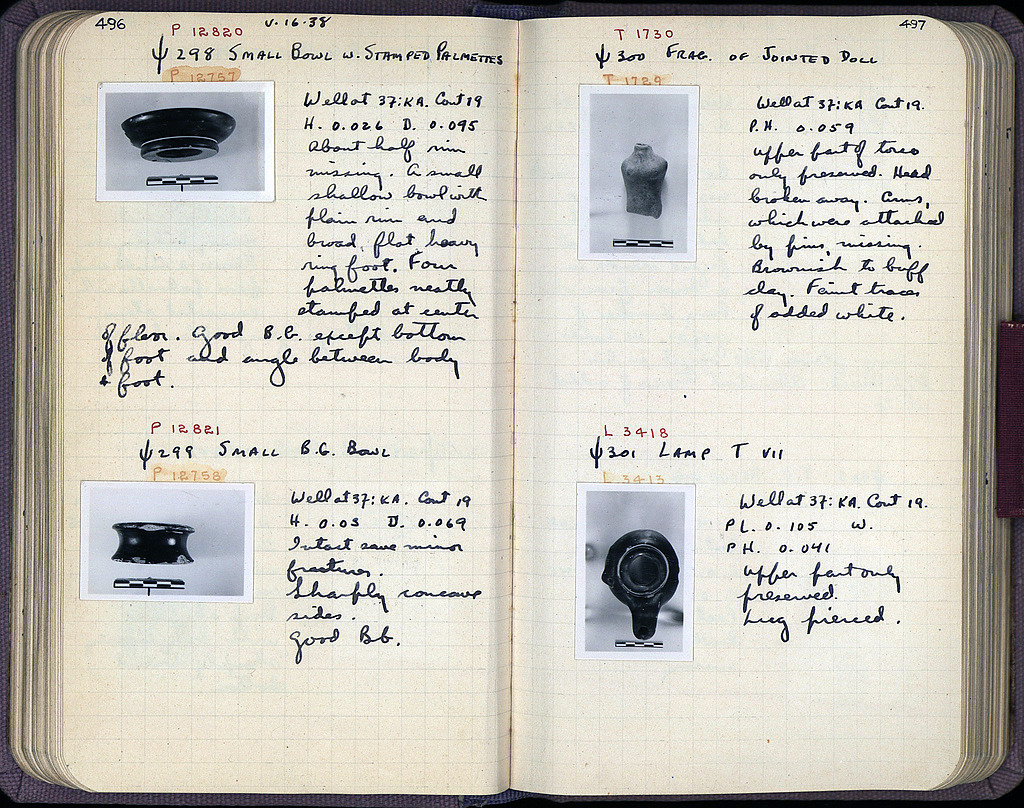 496
V.16.38
P 12820
ψ 298 SMALL BOWL W. STAMPED PALMETTES
P 12757
Well at 37:KA. Cont 19
H. 0.026 D. 0.095
About half rim
missing. A small
shallow bowl with
plain rim and
broad, flat, heavy
ring foot. Four
palmettes neatly
stamped at center
of floor. Good B.G. except bottom
of foot and angle between body
& foot.
P 12821
ψ 299 SMALL B.G. BOWL
P 12758
Well at 37:KA. Cont 19
H. 0.03 D. 0.069
Intact save minor
fractures.
Sharply concave
sides.
Good B.G.
497
T 1730
ψ 300 FRAG. OF JOINTED DOLL
T 1729
Well at 37:KA Cont 19.
P.H. 0.059
Upper part of torso
only preserved. Head
broken away. Arms,
which were attached
by pins, missing.
Brownish to buff
clay. Faint traces
of added white.
L 3418
ψ 301 LAMP T VII
L 3413
Well at 37:KA. Cont 19.
P L. 0.105 W.
P H. 0.041
Upper part only
preserved.
Lug pierced.